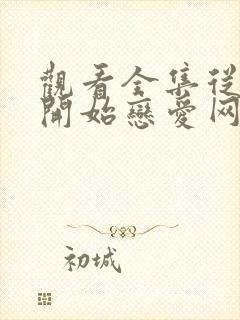 觀看全集從
開始戀愛网
初城